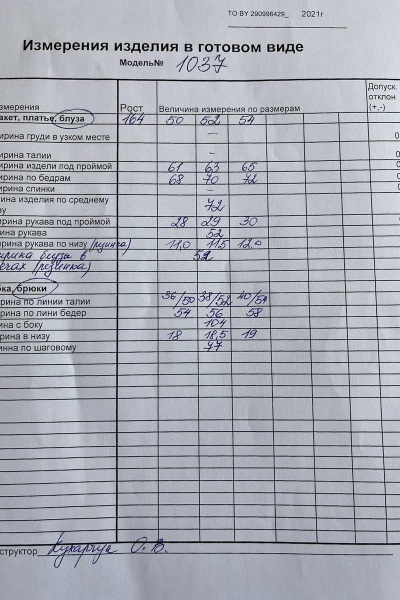 ТО BY 290996429_ 2021г
Измерения изделия в готовом виде
Модель№ 1037
Допуск.
змерения Рост Величина измерения по размерам отклон
(+,-)
акет, платье, блуза 164 50 52 54
ирина груди в узком месте – 0
ирина талии – 0
ирина издели под проймой 61 63 65 0
ирина по бедрам 68 70 72 0
ирина спинки – 0
ина изделия по среднему
ву 72
ирина рукава под проймой 28 29 30
ина рукава 52
ирина рукава по низу (резинка) 11,0 11,5 12,0
ирина блузы в 52
ечах (резинка)
ка, брюки
рина по линии талии 36/50 38/52 40/54
рина по лини бедер 54 56 58
ина с боку 104
рина в низу 18 18,5 19
инна по шаговому 77
структор О. В.